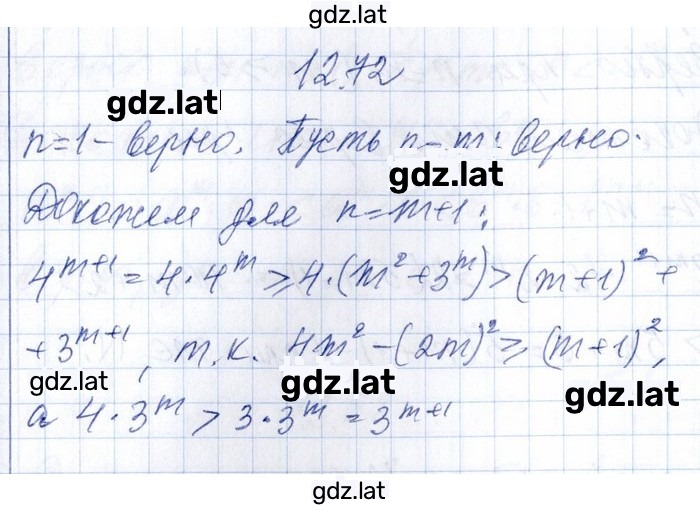 gdz.lat
12.72
gdz.lat
n=1 – верно. Пусть n – m: верно.
gdz.lat
Докажем для n=m+1:
4^{m+1} = 4·4^m ⩾ 4·(m²+3^m) > (m+1)² +
+3^{m+1}, т.к. 4m² – (2m)² ⩾ (m+1)²,
gdz.lat gdz.lat gdz.lat
а 4·3^m > 3·3^m = 3^{m+1}
gdz.lat